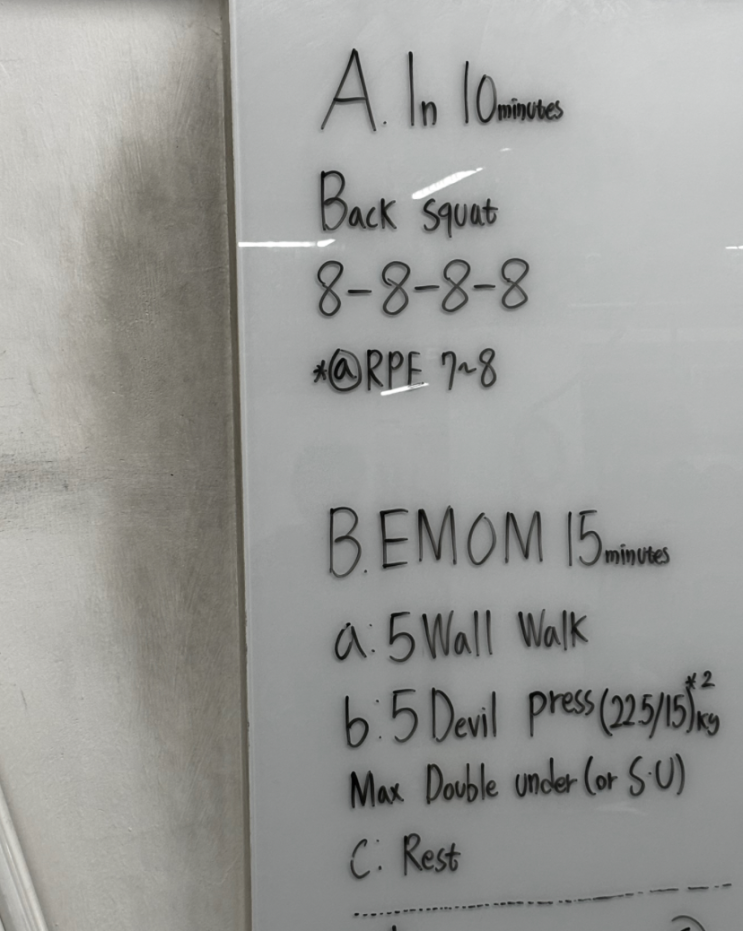 A. In 10 minutes
Back squat
8-8-8-8
*@RPE 7~8
B. EMOM 15 minutes
a: 5 Wall Walk
b: 5 Devil press (22.5/15)kg *2
Max Double under (or S·U)
C: Rest